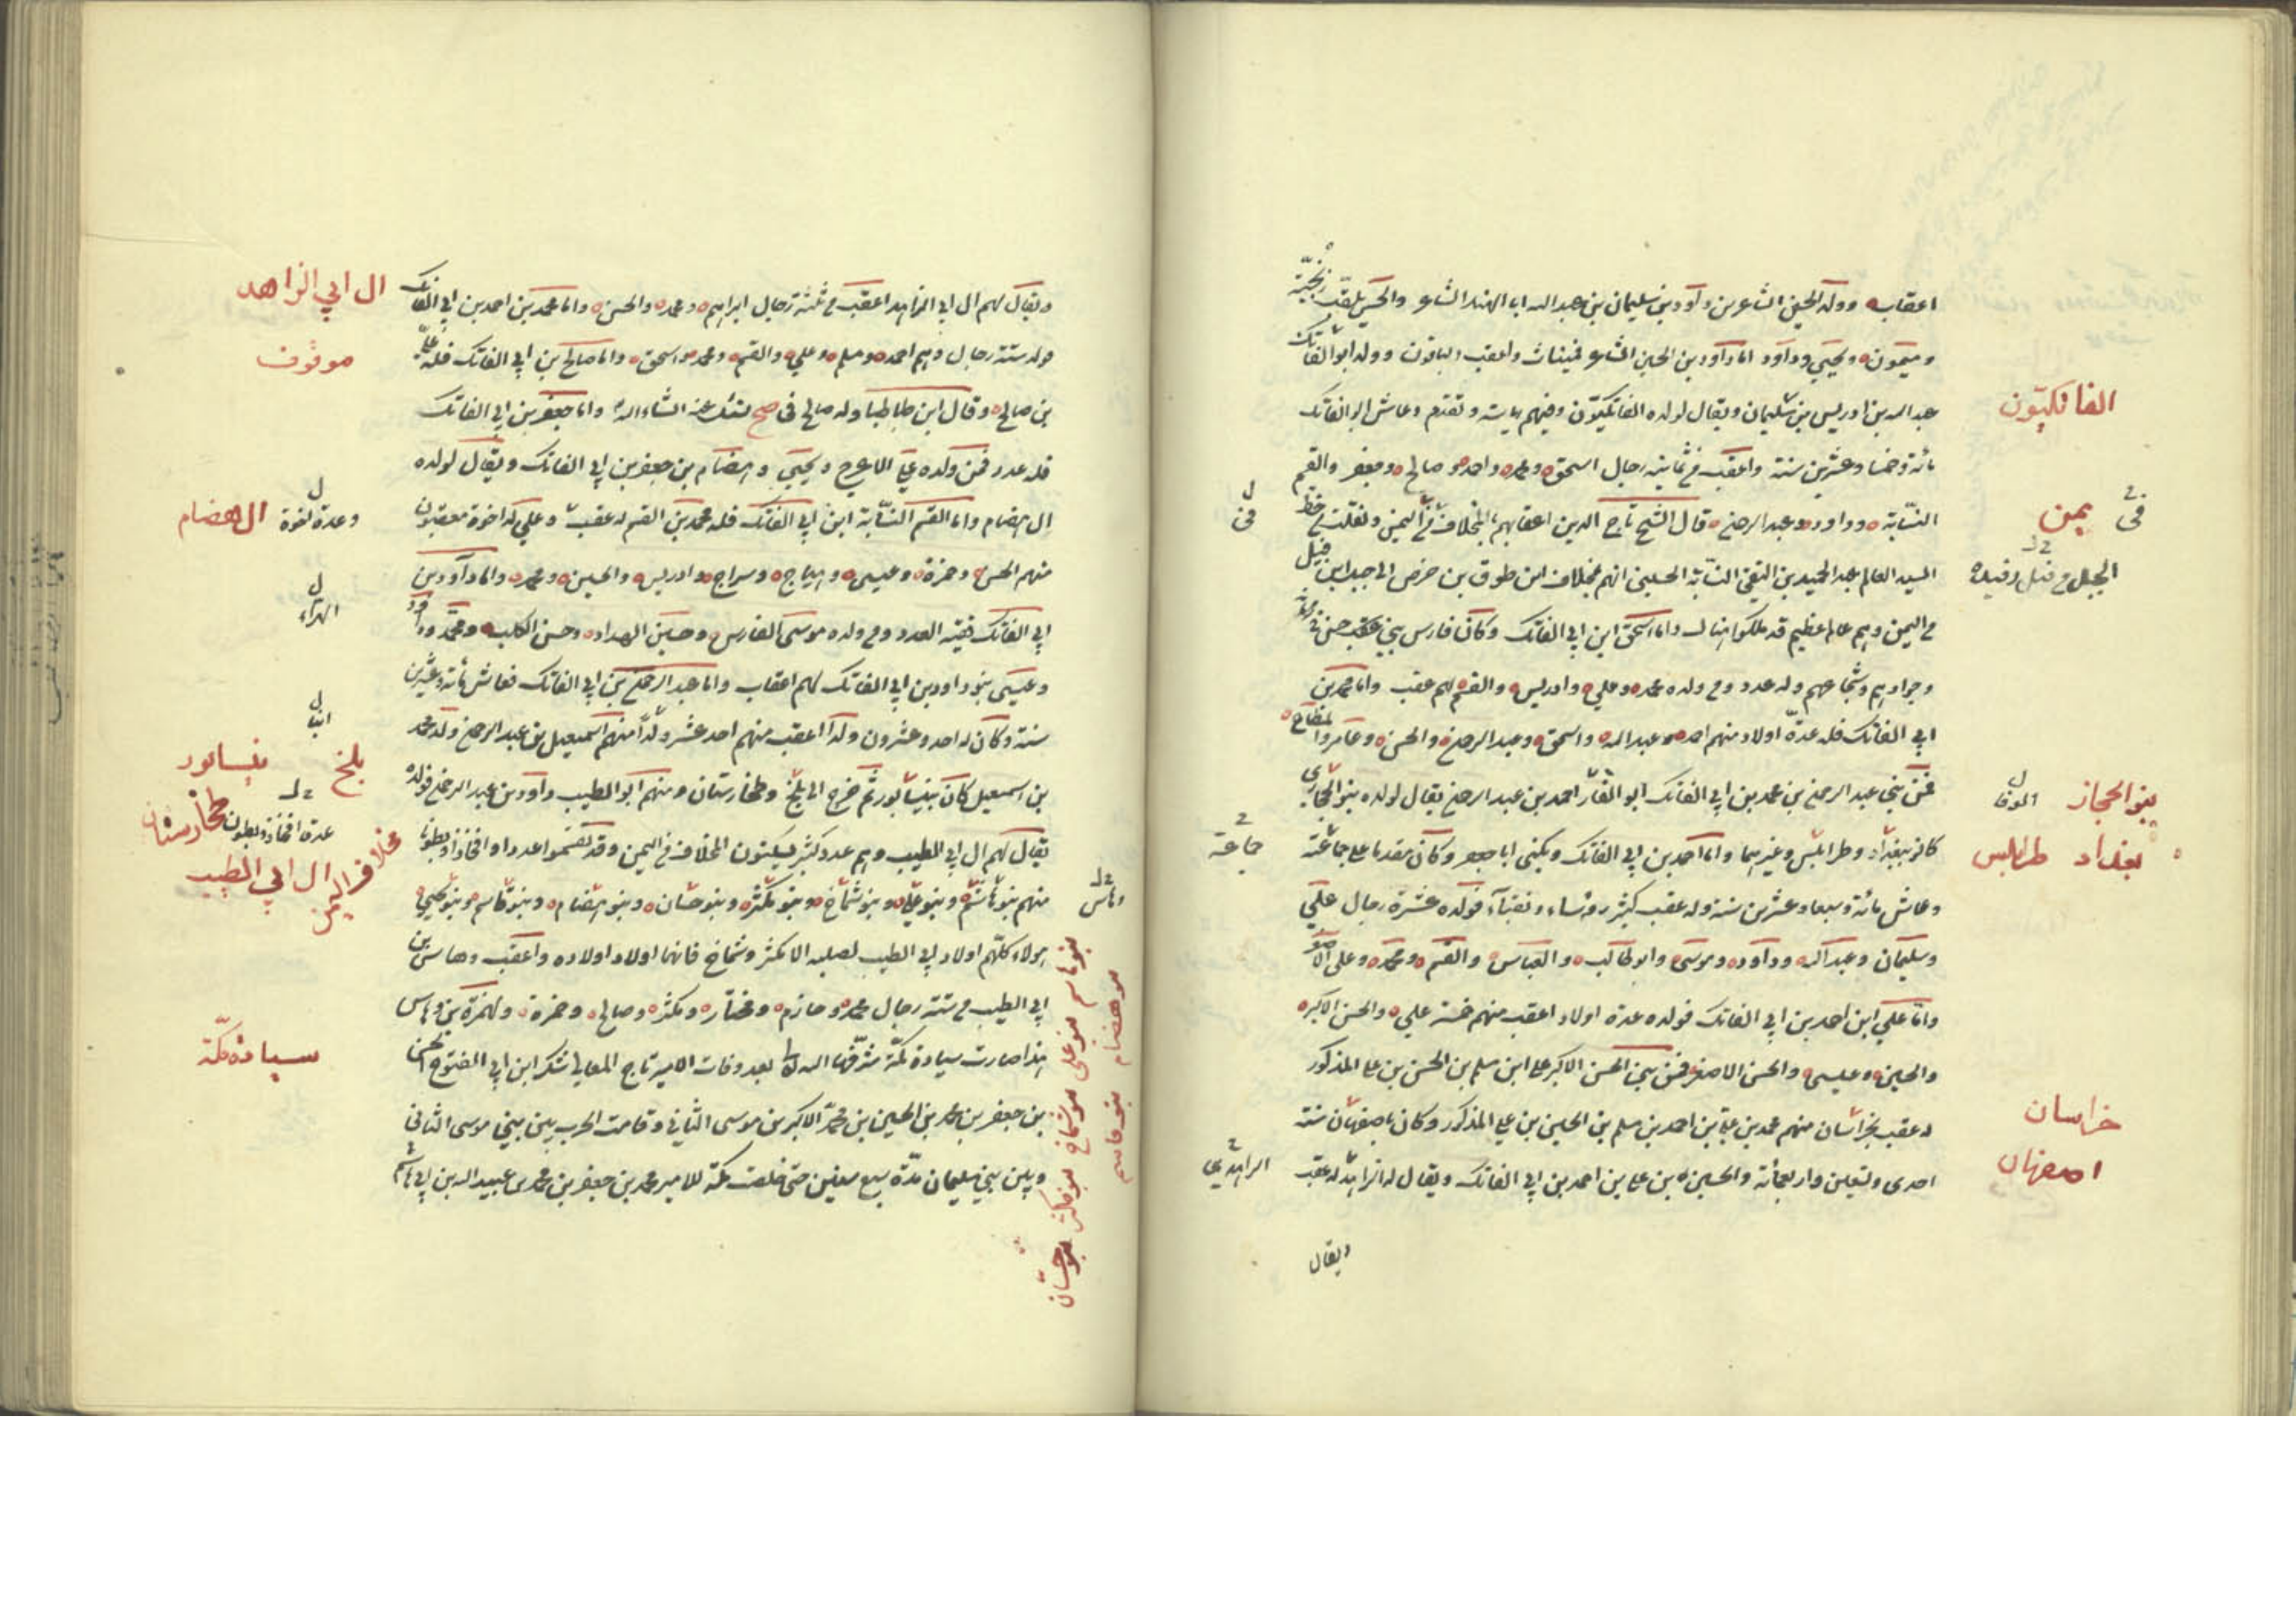 اعقاب وولد الحسين الشاعر بن داود بن سليمان بن عبد الله ابا الهندا الشاعر والحسن يلقب
وميمون ويحيى وداود اما داود بن الحسين الشاعر فميناث والعقب الباقون وولد ابو الفاتك
عبد الله بن ادريس بن سليمان ويقال لولده الفاتكيون وفيهم رياسة وتقدم وعاش ابو الفاتك
مائة وخمسا وعشرين سنة واعقب في ثمانية رجال اسحق ومحمد واحمد وصالح وجعفر والقسم
النسابة وداود وعبد الرحمن قال الشيخ تاج الدين اعقابهم بالمخلاف في اليمن ونقلت خط
السيد العالم عبد الحميد بن التقى النسابة الحسيني انهم بمخلاف ابن طوق بن حرض الى
في اليمن وهم عالم عظيم قد ملكوا هناك واما اسحق ابن ابي الفاتك وكان فارس بني حسن
وجوادهم وشجاعهم وله عدد وفي ولده محمد وعلي وادريس والقسم لهم عقب واما محمد بن
ابي الفاتك فله عدة اولاد منهم احمد وعبد الله واسحق وعبد الرحمن والحسن وعامر
فمن بني عبد الرحمن بن محمد بن ابي الفاتك احمد بن عبد الرحمن يقال لولده بنو الحجازي
كانوا ببغداد وطرابلس وغيرهما واما احمد بن ابي الفاتك ويكنى ابا جعفر وكان مقدما على جماعته
وعاش مائة وسبعا وعشرين سنة وله عقب كثير رؤساء ونقباء فولده عشرة رجال علي
وسليمان وعبد الله وداود وموسى وابو طالب والعباس والقسم ومحمد وعلي الاصغر
واما علي ابن احمد بن ابي الفاتك فولده عدة اولاد اعقب منهم خمسة علي والحسن الاكبر
والحسين وعيسى والحسن الاصغر فمن بني الحسن الاكبر علي ابن مسلم بن الحسن بن علي المذكور
له عقب بخراسان منهم محمد بن علي بن احمد بن مسلم بن الحسين بن علي المذكور وكان باصفهان سنة
احدى وتسعين واربعمائة والحسين بن علي بن احمد بن ابي الفاتك ويقال له الزاهد له عقب
ويقال
الفاتكيون
في يمن
بنو الحجاز
بغداد طرابلس
جماعة
خراسان
اصفهان
ويقال لهم ال ابي الزاهد اعقب في ثلثة رجال ابراهيم ومحمد والحسن واما محمد بن احمد بن ابي الفاتك
فولد ستة رجال وهم احمد ومسلم وعلي والقسم ومحمد واسحق واما صالح بن ابي الفاتك فله
بن صالح وقال ابن طباطبا وله صالح في صح نسئل عنه انشاء الله واما جعفر بن ابي الفاتك
فله عدد فمن ولده علي الاعرج ويحيى وهضام بن جعفر بن ابي الفاتك ويقال لولده
ال هضام واما القسم النسابة ابن ابي الفاتك فله محمد بن القسم له عقب وعلي له اخوة معقبون
منهم الحسن وحمزة وعيسى وهياج وسراج وادريس والحسين ومحمد واما داود بن
ابي الفاتك ففيه العدد وفي ولده موسى الفارس وحسين الهداد وحسن الكلب ومحمد
وعيسى بنو داود بن ابي الفاتك لهم اعقاب واما عبد الرحمن بن ابي الفاتك فعاش مائة وعشرين
سنة وكان له احد وعشرون ولدا اعقب منهم احد عشر ولدا منهم اسمعيل بن عبد الرحمن ولد محمد
بن اسمعيل كان بنيسابور ثم خرج الى بلخ وطخارستان ومنهم ابو الطيب داود بن عبد الرحمن فولده
يقال لهم ال ابي الطيب وهم عدد كثير يسكنون المخلاف في اليمن وقد تقسموا عددا وافخاذا وبطونا
منهم بنو هاشم وبنو علي وبنو شماخ وبنو مكثر وبنو حسان وبنو هضام وبنو قاسم وبنو يحيى
هولاء كلهم اولاد ابي الطيب لصلبه الا مكثر وشماخ فانهما اولاد اولاده واعقب وهاس بن
ابي الطيب في ستة رجال محمد وحازم ومختار ومكثر وصالح وحمزة ولحمزة بن وهاس
هذا صارت سيادة مكة شرفها الله بعد وفات الامير تاج المعالي شكر ابن ابي الفتوح الحسن
بن جعفر بن محمد بن الحسين بن محمد الاكبر بن موسى الثاني وقامت الحرب بين بني موسى الثاني
وبين بني سليمان مدة سبع سنين حتى خلصت مكة للامير محمد بن جعفر بن محمد بن عبد الله بن ابي هاشم
ال ابي الزاهد
موقوف
وعدة لغوة ال هضام
بلخ نيسابور
طخارستان
ال ابي الطيب
سيادة مكة
وهاس
بنو هاشم بنو علي بنو شماخ بنو مكثر بنو حسان
بنو هضام بنو قاسم